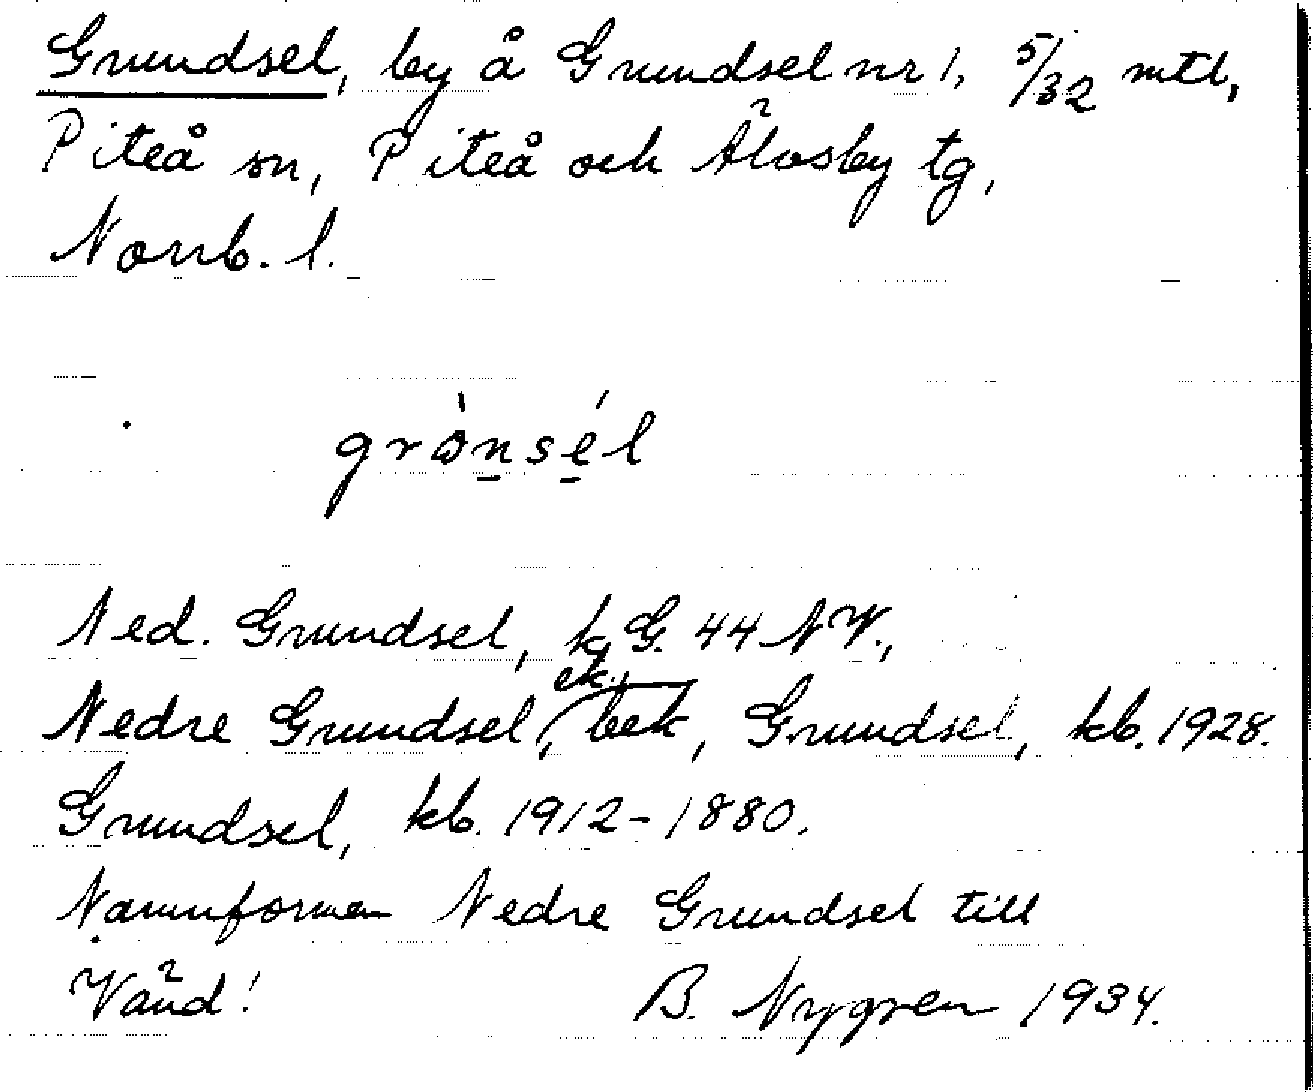 Grundsel, by å Grundsel nr 1, 5/32 mtl,
Piteå sn, Piteå och Älvsby tg,
Norrb. l.
grònsél
Ned. Grundsel, k G. 44 NV.,
ek.,
Nedre Grundsel, bek, Grundsel, kb. 1928.
Grundsel, kb. 1912-1880.
Namnformen Nedre Grundsel till
Vänd! B. Nygren 1934.